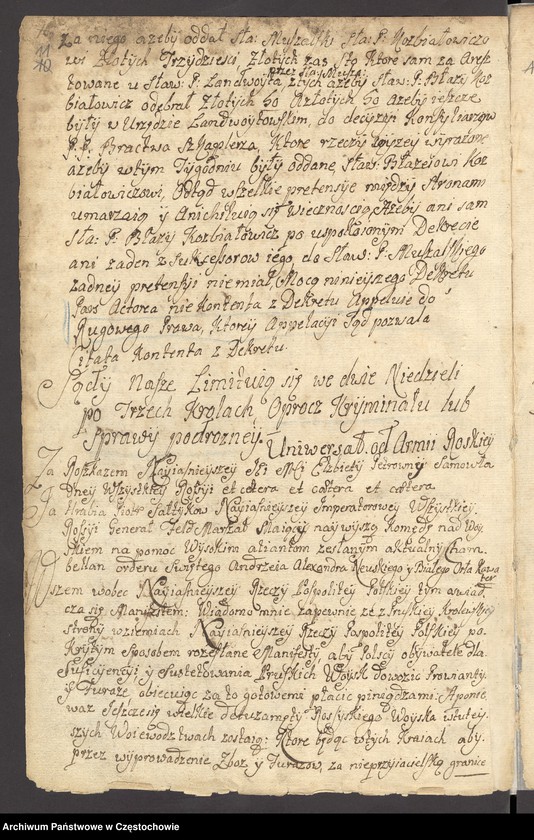 11
10
Za niego ażeby oddał Sła: Muszalski Sła: P. Kozbiałowiczo
wi Złotych Trzydzieści, Złotych zas sto Ktore sam za Aresz
przez Sła: Musza:
towane u Sław: P. Landwoyta złtych ażeby Sław: P. Błazy Koz
białowicz odebrał Złotych 60 Azłotych 60 ażeby ieszcze
były w Urzędzie Landwoytowskim, do decyzyi Konsyliarzow
P. P. Bractwa Szkaplerza, Ktore rzeczy wyżey wyrażone
ażeby wtym Tygodniu były oddane, Sław: P. Błażeiowi Koz
białowiczowi, Odtąd wszelkie pretensye między Stronami
umarzaią y Anichiluią się wiecznością, Ażeby ani sam
Sła: P. Błazy Kozbiałowicz po uspokoionym Dekrecie
ani żaden z Sukcessorow iego, do Sław: P: Muszalskiego
żadney pretensyi nie miał, Mocą ninieyszego Dekretu
Pars Actorea nie Kontenta z Dekretu Appeluie do
Rugowego Prawa, Ktorey Appelacyi Sąd pozwala
Citata Kontenta z Dekretu.
Sądy Nasze Limituią się we dwie Niedzieli
po Trzech Krolach Oprocz Kryminału lub
Sprawy podrożney.
Uniwersał od Armii Roskiey
Za Rozkazem Nayiaśnieyszey JEi Mci Elżbiety Petrowny Samowła
dney Wszystkiey Rossyi et cetera et cetera et cetera
Ja Hrabia Piotr Sałtykow Nayiaśnieyszey Imperatorowey Wszystkiey
Rossyi Generał Feld Marszał Maiący naywyższą Komędę nad Woy
skiem na pomoc Wysokim aliantom zesłanym aktualny Cham
bellan orderu Swiętego Andrzeia Alexandra Newskiego y Białego Orła Kawa
ler
Wszem wobec Nayiaśnieyszey Rzeczy Pospolitey Polskiey tym oświad
cza się Manifestem: Wiadomo mnie zapewnie że z Pruskiey Krolewskiey
strony wziemiach Nayiaśnieyszey Rzeczy Pospolitey Polskiey po
Krytym sposobem rozesłane Manifesty, aby Polscy obywatele dla
Sufficyencyi y Sustetowania Pruskich Woysk dowozić Prowianty
y Furaże obiecuiąc za to gotowemi płacić pinądzami: A ponie
waż Jeszcze się wielkie detaszamęty Rossyiskiego Woyska wtutey
szych Woiewodztwach zostaią: Ktore będąc wtych Kraiach aby
przez wyprowadzenie Zboż y Furażow, za nieprzyiacielską granicę
Archiwum Państwowe w Częstochowie